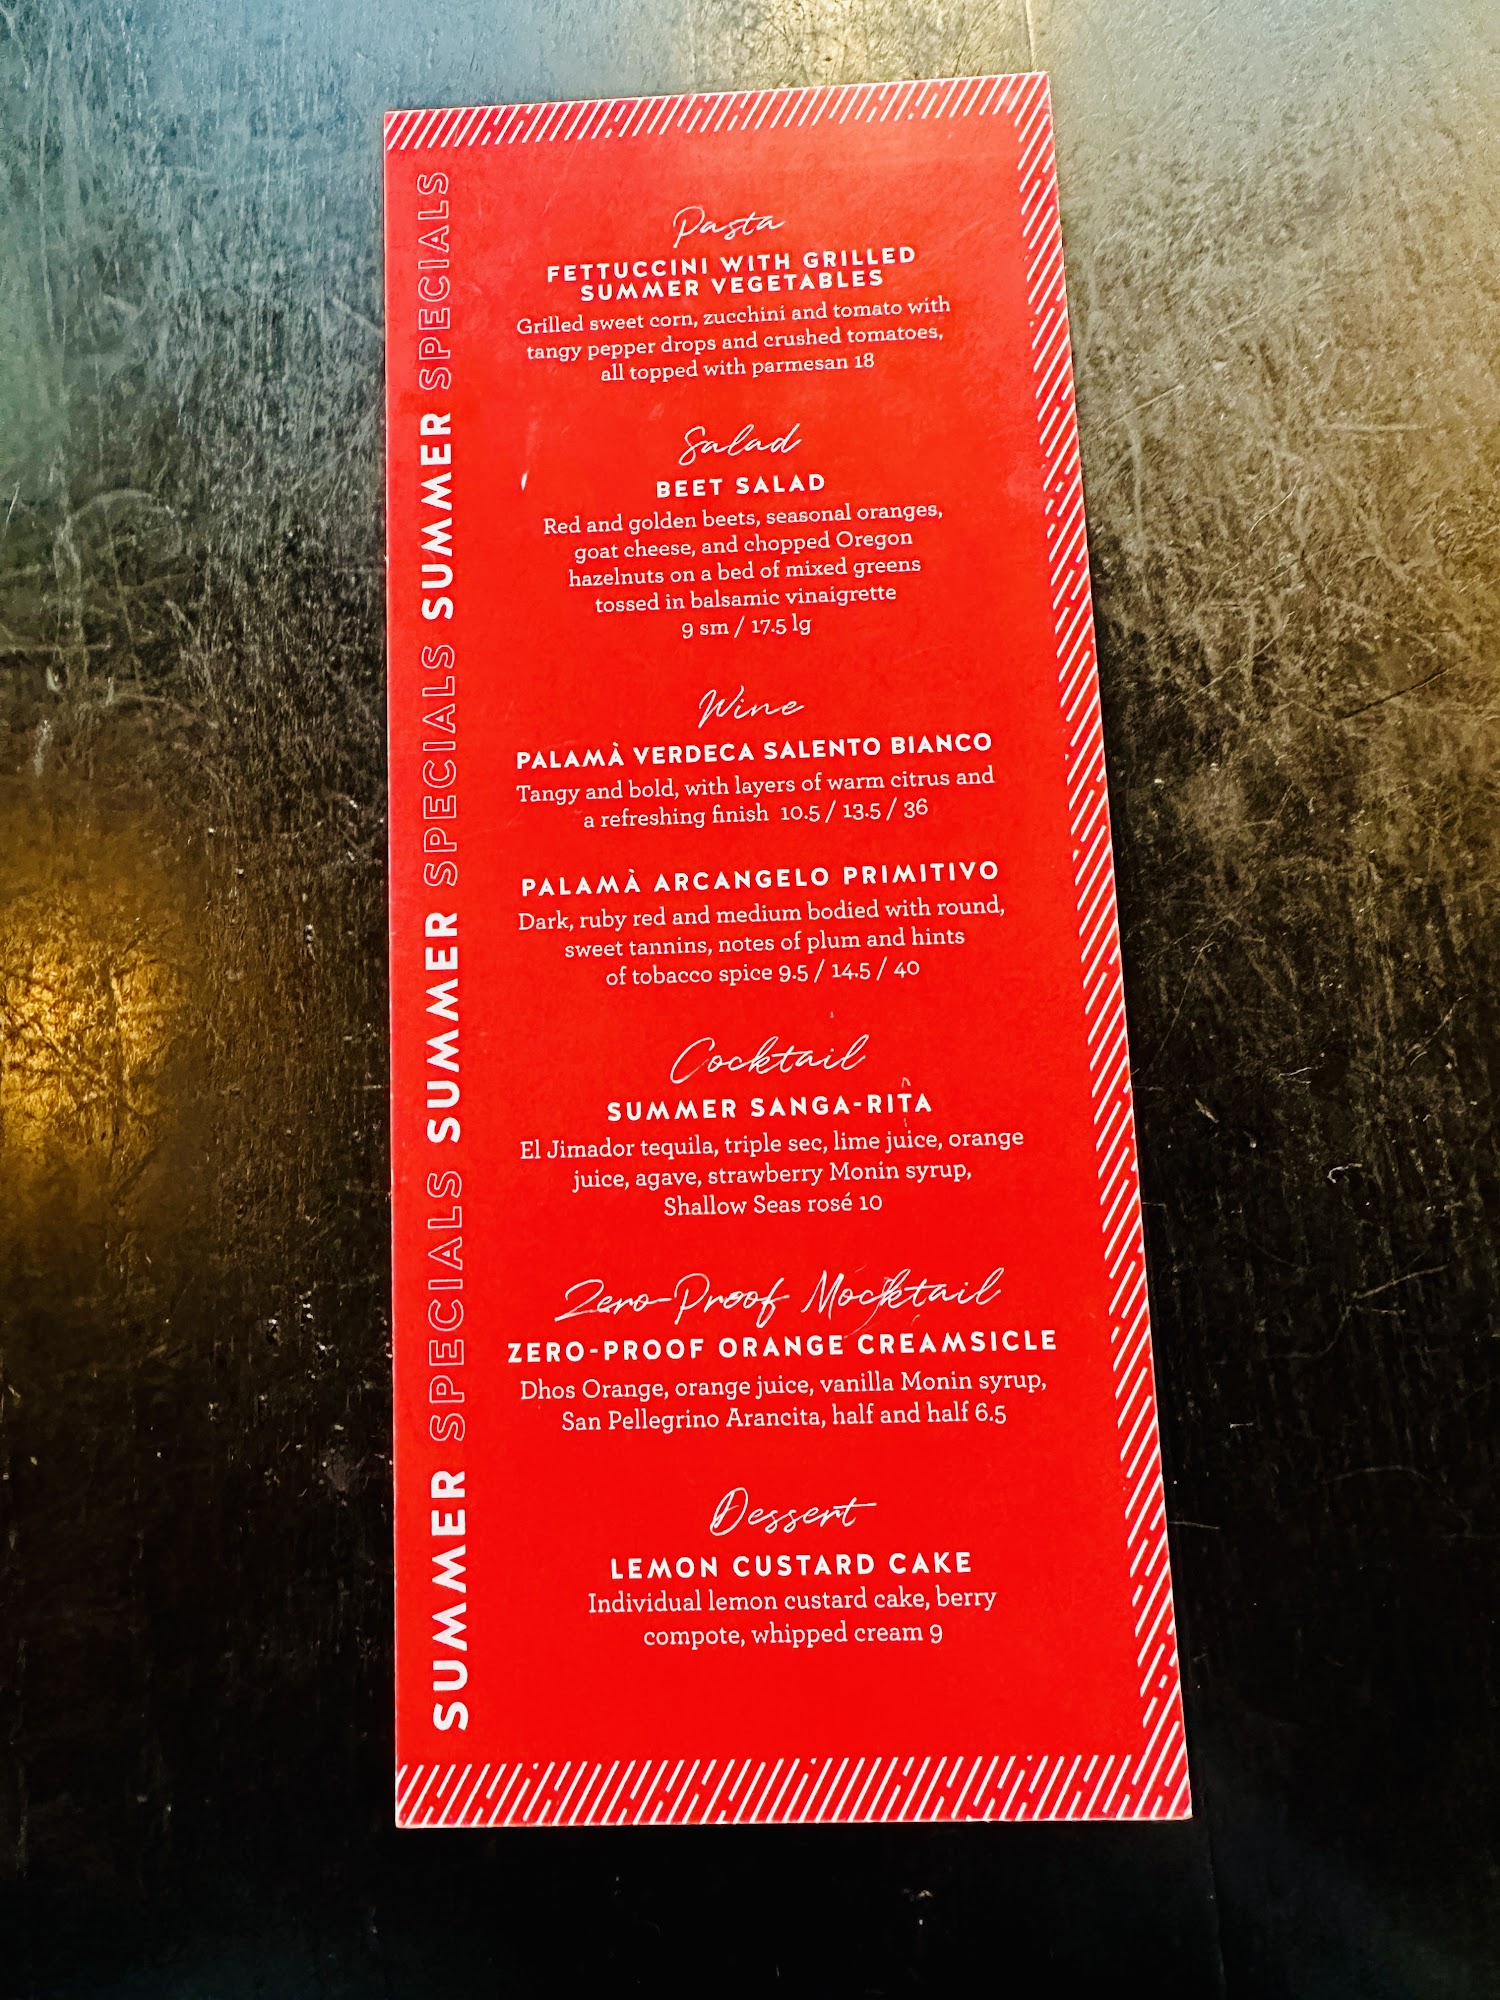 SUMMER SPECIALS SUMMER SPECIALS SUMMER SPECIALS
Pasta
FETTUCCINI WITH GRILLED
SUMMER VEGETABLES
Grilled sweet corn, zucchini and tomato with
tangy pepper drops and crushed tomatoes,
all topped with parmesan 18
Salad
BEET SALAD
Red and golden beets, seasonal oranges,
goat cheese, and chopped Oregon
hazelnuts on a bed of mixed greens
tossed in balsamic vinaigrette
9 sm / 17.5 lg
Wine
PALAMÀ VERDECA SALENTO BIANCO
Tangy and bold, with layers of warm citrus and
a refreshing finish 10.5 / 13.5 / 36
PALAMÀ ARCANGELO PRIMITIVO
Dark, ruby red and medium bodied with round,
sweet tannins, notes of plum and hints
of tobacco spice 9.5 / 14.5 / 40
Cocktail
SUMMER SANGA-RITA
El Jimador tequila, triple sec, lime juice, orange
juice, agave, strawberry Monin syrup,
Shallow Seas rosé 10
Zero-Proof Mocktail
ZERO-PROOF ORANGE CREAMSICLE
Dhos Orange, orange juice, vanilla Monin syrup,
San Pellegrino Arancita, half and half 6.5
Dessert
LEMON CUSTARD CAKE
Individual lemon custard cake, berry
compote, whipped cream 9